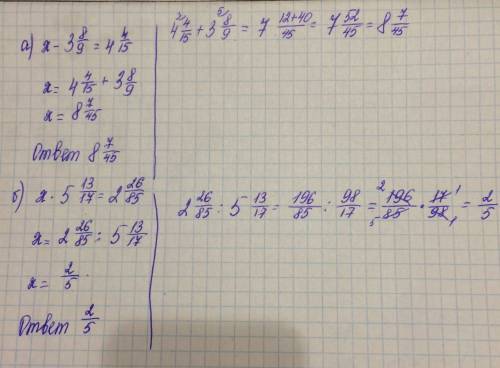 а) x - 3 8/9 = 4 4/15
x = 4 4/15 + 3 8/9
x = 8 7/45
Ответ 8 7/45
4 4/15 + 3 8/9 = 7 12+40/45 = 7 52/45 = 8 7/45
б) x · 5 13/17 = 2 26/85
x = 2 26/85 : 5 13/17
x = 2/5
Ответ 2/5
2 26/85 : 5 13/17 = 196/85 : 98/17 = 196/85 · 17/98 = 2/5